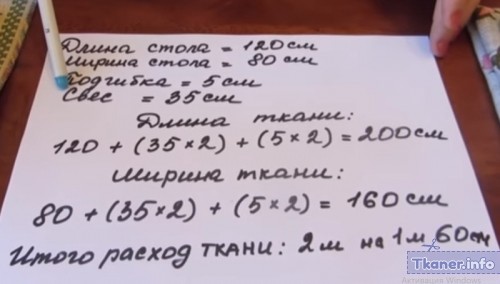 Длина стола = 120 см
Ширина стола = 80 см
Подгибка = 5 см
Свес = 35 см
Длина ткани:
120 + (35×2) + (5×2) = 200 см
Ширина ткани:
80 + (35×2) + (5×2) = 160 см
Итого расход ткани: 2 м на 1 м 60 см
Tkaner.info
Активация Windows